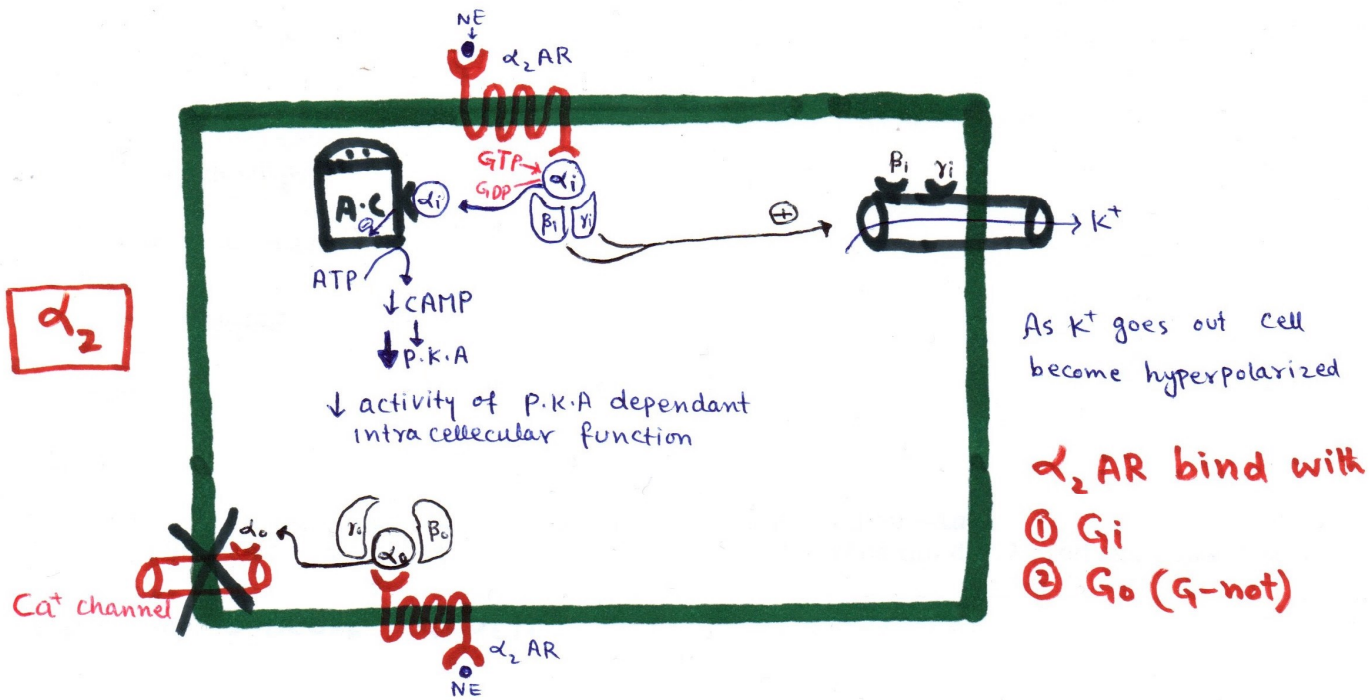 NE
α₂ AR
GTP
GDP
αi
βi γi
A.C
αi
ATP
↓ CAMP
↓ P.K.A
↓ activity of P.K.A dependant
intra cellecular function
βi γi
+
K⁺
α₂
As K⁺ goes out cell
become hyperpolarized
α₂ AR bind with
① Gi
② Go (G-not)
αo
γo
αo
βo
Ca⁺ channel
α₂ AR
NE